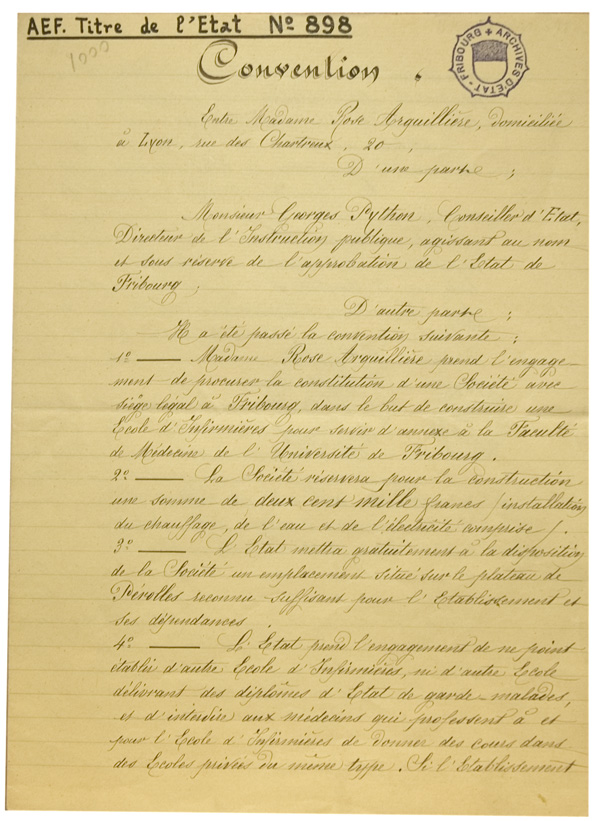 AEF. Titre de l'Etat No 898
1000
FRIBOURG + ARCHIVES D'ETAT
Convention.
Entre Madame Rose Arguillière, domiciliée
à Lyon, rue des Chartreux, 20,
D'une part ;
Monsieur Georges Python, Conseiller d'Etat,
Directeur de l'Instruction publique, agissant au nom
et sous réserve de l'approbation de l'Etat de
Fribourg ;
D'autre part ;
Il a été passé la convention suivante :
1o — Madame Rose Arguillière prend l'engage-
ment de procurer la constitution d'une Société avec
siège légal à Fribourg, dans le but de construire une
Ecole d'Infirmières pour servir d'annexe à la Faculté
de Médecine de l'Université de Fribourg.
2o — La Société réservera pour la construction
une somme de deux cent mille francs (installation
du chauffage, de l'eau et de l'électricité comprise).
3o — L'Etat mettra gratuitement à la disposition
de la Société un emplacement situé sur le plateau de
Pérolles reconnu suffisant pour l'Etablissement et
ses dépendances.
4o — L'Etat prend l'engagement de ne point
établir d'autre Ecole d'Infirmières, ni d'autre Ecole
délivrant des diplômes d'Etat de garde-malades,
et d'interdire aux médecins qui professent à et
pour l'Ecole d'Infirmières de donner des cours dans
des Ecoles privées du même type. Si l'Etablissement